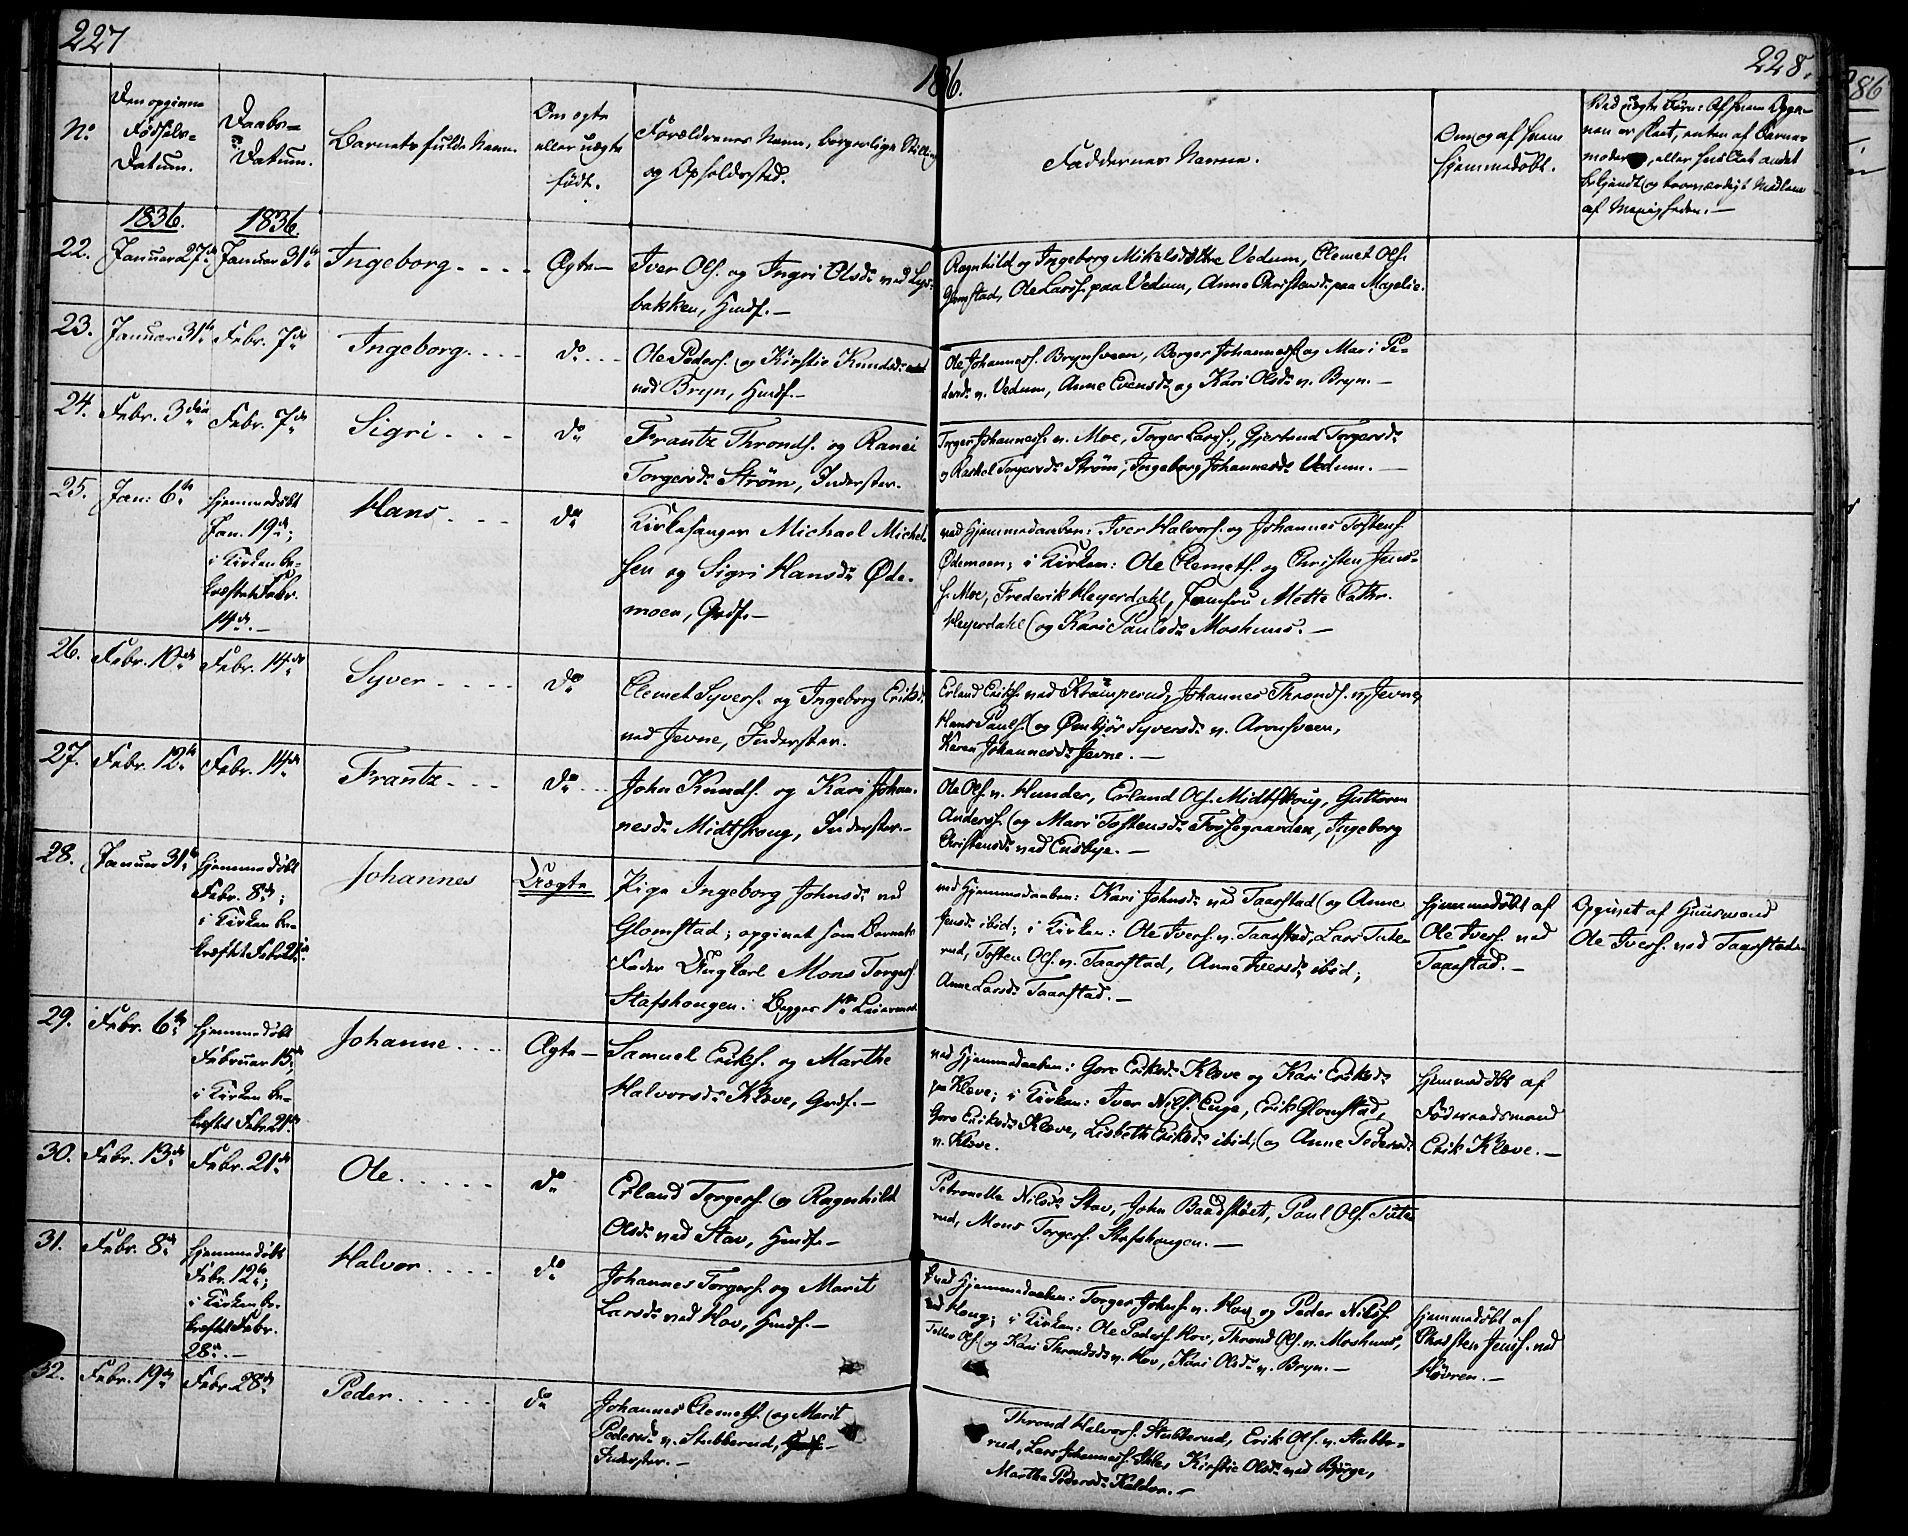 227
1836.
228.
No
Den opgivne Fødsels-Datum.
Daabs-Datum.
Barnets fulde Navn.
Om ægte eller uægte født.
Forældrenes Navn, borgerlige Stilling og Opholdssted.
Faddernes Navne.
Om og af hvem hjemmedøbt.
Ved uægte Børn: Af hvem Opgivelsen er skeet, enten af Barnemoderen, eller hvilket andet bekjendt og troværdigt Medlem af Menigheden.—
1836. 1836.
22. Januar 27de Januar 31te Ingeborg.... Ægte—
Iver Ols. og Ingri Olsdr ved Lys-
bakken, Husf.—
Ragnhild og Ingeborg Mikelsdøttre Vedum, Clemet Ols.
Glomstad, Ole Lars. paa Vedum, Anne Christensdr paa Majelie.
23. Januar 31te Febr. 7de Ingeborg.... do...
Ole Peders. og Kirstie Knudsdr
ved Bryn, Husf.—
Ole Johanness. Brynsveen, Berger Johanness. og Mari Pe-
dersdr v. Vedum, Anne Evensdr og Kari Olsdr v. Bryn.—
24. Febr. 3die Febr. 7de Sigri... do
Frantz Thronds. og Ranei
Torgersdr Strøm, Inderster.
Torger Johanness. v. Moe, Torger Lars., Gjertrud Torgersdr
og Rachel Torgersdr Strøm, Ingeborg Johannesdr Vedum.—
25. Jan: 6te hjemmedøbt Jan. 19de; i Kirken bekræftet Febr. 14de.— Hans... do
Kirkesanger Michael Michel-
sen og Sigri Hansdr Øde-
moen, Grdf.—
ved Hjemmedaaben: Iver Halvors. og Johannes Tostens.
Ødemoen; i Kirken: Ole Clemets. og Christen Jens-
s. Moe, Frederik Heyerdahl, Jomfru Mette Cathr.
Heyerdahl og Kari Paulsdr Moshuus.—
26. Febr. 10de Febr. 14de Syver.... do
Clemet Syvers. og Ingeborg Eriksdr
ved Jevne, Inderster.
Erland Eriks. ved Kramperud, Johannes Thronds. v. Jevne,
Hans Pauls. og Øenbjør Syversdr v. Aronsveen,
Karen Johannesdr Jevne.—
27. Febr. 12te Febr. 14de Frantz... do...
John Knuds. og Kari Johan-
nesdr Midtskoug, Inderster—
Ole Ols. v. Hunder, Erland Ols. Midtskoug, Guttorm
Anders. og Mari Tostensdr Fossegaarden, Ingeborg
Christensdr ved Ensbye.—
28. Januar 31te hjemmedøbt Febr. 8de; i Kirken bekræftet Febr. 21de. Johannes Uægte
Pige Ingeborg Johnsdr ved
Glomstad; opgivet som Barnets
Fader Ungkarl Mons Torgers.
Stafshougen: Begges 1te Leiermaal.
ved Hjemmedaaben: Kari Johnsdr ved Taarstad og Anne
Jensdr ibid; i Kirken: Ole Ivers. v. Taarstad, Lars Tute-
rud, Tosten Ols. v. Taarstad, Anne Iversdr ibid;
Anne Larsdr Taarstad.—
hjemmedøbt af
Ole Ivers. ved
Taarstad.—
Opgivet af Huusmand
Ole Ivers. ved Taarstad
29. Febr. 6te hjemmedøbt Februar 15de, i Kirken bekræftet Febr. 21de Johanne.... Ægte—
Samuel Eriks. og Marthe
Halvorsdr Kleve, Grdf.—
ved Hjemmedaaben: Gore Eriksdr Kleve og Kari Eriksdr
paa Kleve; i Kirken: Iver Nils. Enge, Erik Glomstad,
Gore Eriksdr Kleve, Lisbeth Eriksdr ibid, og Anne Pedersdr
v. Kleve.
hjemmedøbt af
Føderaadsmand
Erik Kleve.—
30. Febr. 13de Febr. 21de Ole..... do
Erland Torgers. og Ragnhild
Olsdr ved Stav, Husf.—
Petronelle Nilsdr Stav, John Baadstøet, Paul Ols. Tute-
rud, Mons Torgers. Stafshougen.—
31. Febr. 8de hjemmedøbt Febr. 12te; i Kirken bekræftet Febr. 28de.— Halvor.... do
Johannes Torgers. og Marit
Larsdr ved Hov, Husf.—
ved Hjemmedaaben: Torger Johns. v. Hov og Peder Nils.
ved Houg; i Kirken: Ole Peders. Hov, Thrond Ols. v. Moshuus,
Ols. og Kari Throndsdr v. Hov, Kari Olsdr v. Bryn.—
hjemmedøbt af
Christen Jens. ved
Høvren.—
32. Febr. 19de Febr. 28de Peder..... do
Johannes Clemets. og Marit
Pedersdr v. Stubberud,
Inderster.—
Thrond Halvors. Stubberud, Erik Ols. v. Stubbe-
rud, Lars Johanness. Kirstie Olsdr ved Bjørge,
Marthe Pedersdr Kalder.—